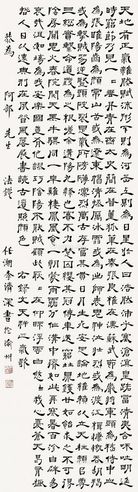 天地有正氣雜然賦流形下則為河嶽上則為日星於人曰浩然沛乎塞蒼冥皇路當清夷含和吐明庭
時窮節乃見一一垂丹青在齊太史簡在晉董狐筆在秦張良椎在漢蘇武節為嚴將軍頭為嵇侍中血
為張睢陽齒為顏常山舌或為遼東帽清操厲冰雪或為出師表鬼神泣壯烈或為渡江楫慷慨吞胡羯
或為擊賊笏逆豎頭破裂是氣所磅礴凜烈萬古存當其貫日月生死安足論地維賴以立天柱賴以尊
三綱實係命道義為之根嗟予遘陽九隸也實不力楚囚纓其冠傳車送窮北鼎鑊甘如飴求之不可得
陰房闃鬼火春院閟天黑牛驥同一皂雞棲鳳凰食一朝蒙霧露分作溝中瘠如此再寒暑百沴自辟易
哀哉沮洳場為我安樂國豈有他繆巧陰陽不能賊顧此耿耿在仰視浮雲白悠悠我心憂蒼天曷有極
哲人日以遠典型在夙昔風簷展書讀古道照顏色 右錄文天祥正氣歌
恭為 阿部先生 法鑒 任潮李濟深書於渝州